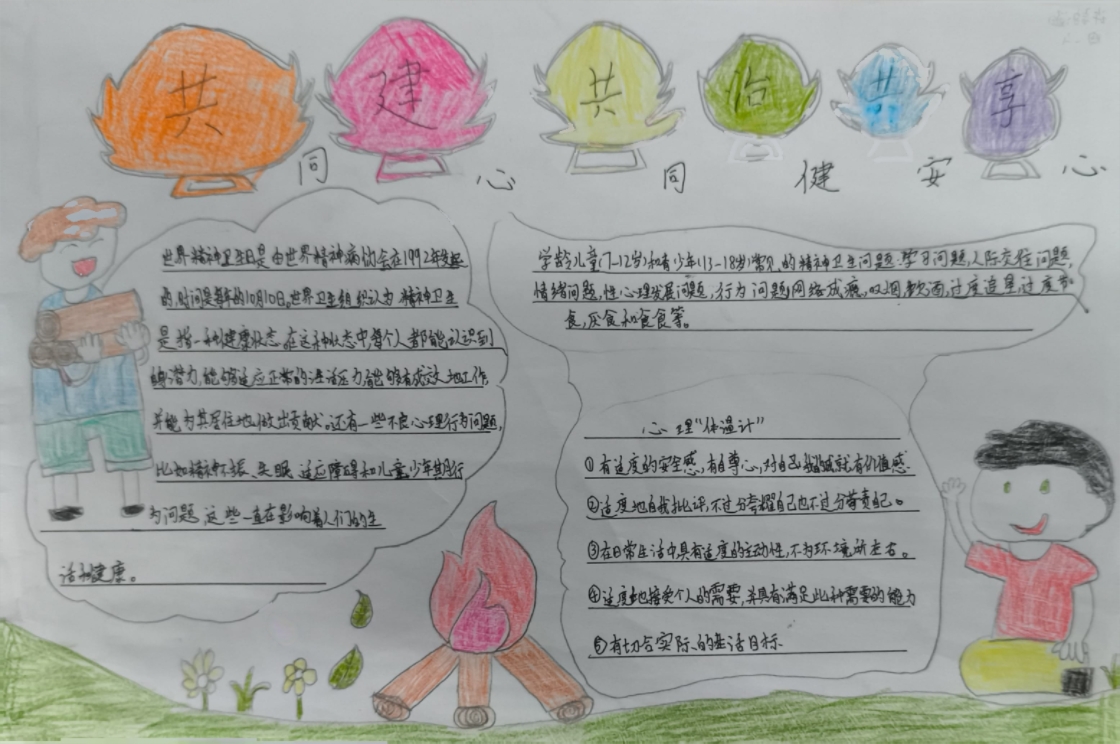 共 建 共 治 共 享
同 心 同 健 安 心
世界精神卫生日是由世界精神病协会在1992年发起
的,时间是每年的10月10日。世界卫生组织认为,精神卫生
是指一种健康状态,在这种状态中,每个人都能认识到
潜力,能够适应正常的生活压力,能够有成效地工作,
并能为其居住地做出贡献。还有一些不良心理行为问题,
比如精神不振、失眠、适应障碍和儿童少年期行
为问题,这些一直在影响着人们的生
活和健康。
学龄儿童(7-12岁)和青少年(13-18岁)常见的精神卫生问题:学习问题,人际交往问题,
情绪问题,性心理发展问题,行为问题,网络成瘾,吸烟,饮酒,过度追星,过度节
食,厌食和贪食等。
心理“体温计”
①有适度的安全感,有自尊心,对自己的成就有价值感.
②适度地自我批评,不过分夸耀自己也不过分苛责自己。
③在日常生活中具有适度的主动性,不为环境所左右。
④适度地接受个人的需要,并具有满足此种需要的能力
⑤有切合实际的生活目标.